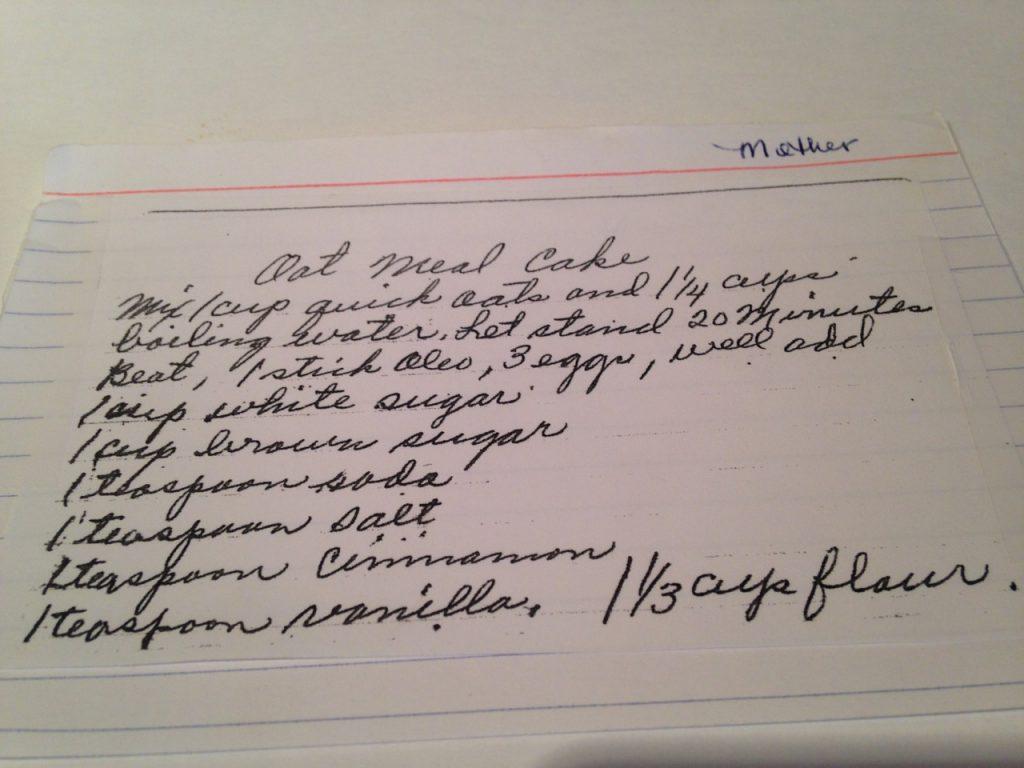 Mother
Oat Meal Cake
Mix 1 cup quick oats and 1 1/4 cups
boiling water. Let stand 20 Minutes
Beat, 1 stick oleo, 3 eggs, well add
1 cup white sugar
1 cup brown sugar
1 teaspoon soda
1 teaspoon salt
1 teaspoon cinnamon
1 teaspoon vanilla. 1 1/3 cups flour.